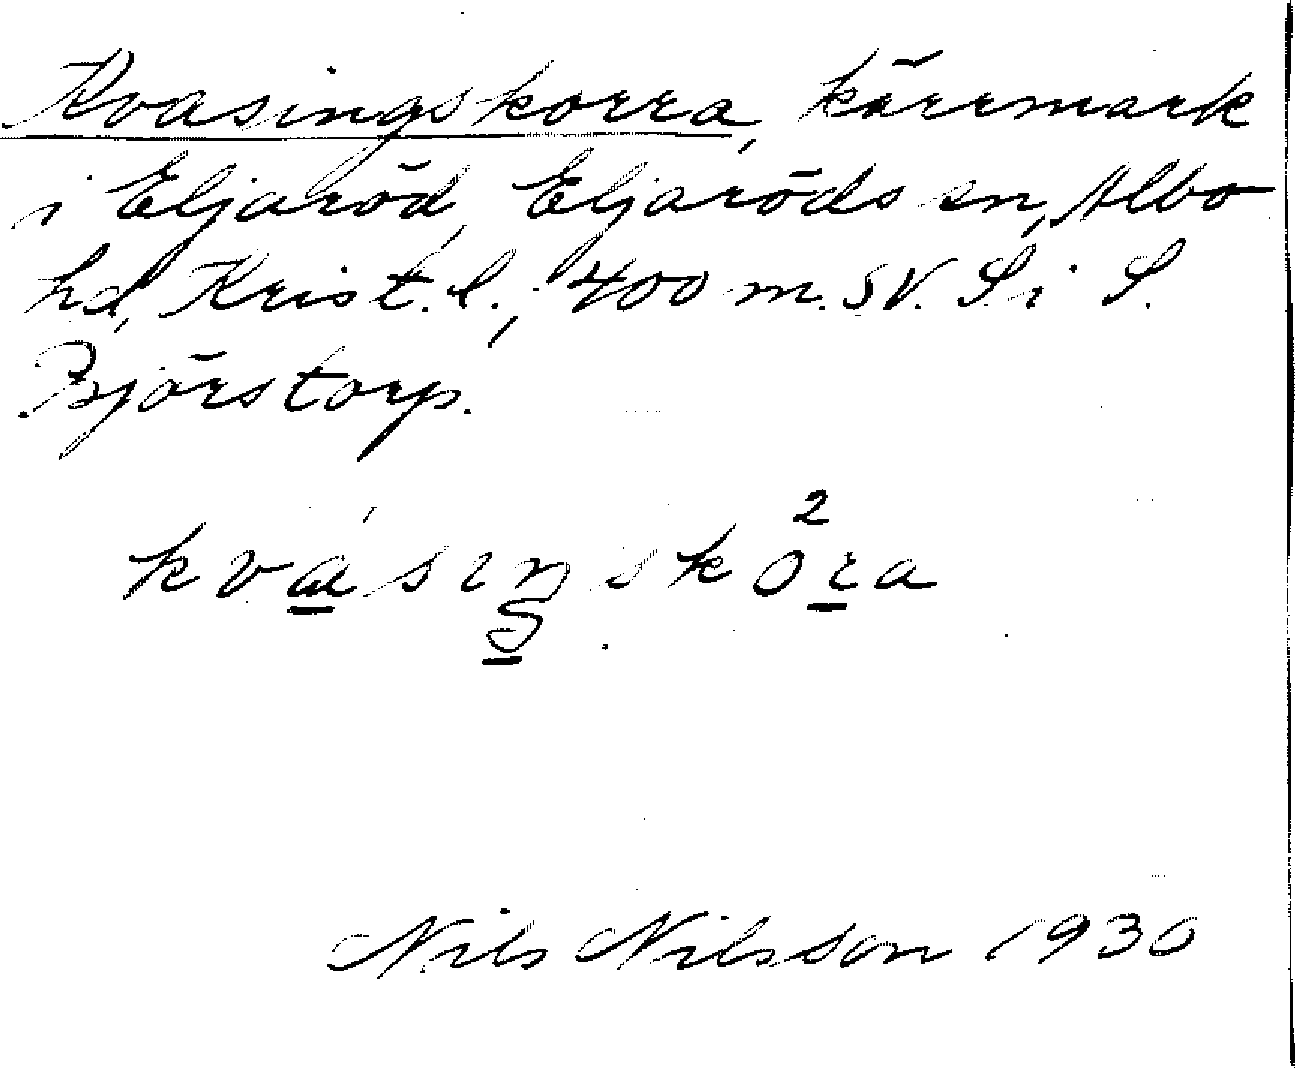 Kvasingskorra, kärrmark
i Eljaröd, Eljaröds sn, Albo
hd, Krist. l., 400 m. SV. S. i S.
Björstorp.
2
kvásıŋskora
Nils Nilsson 1930